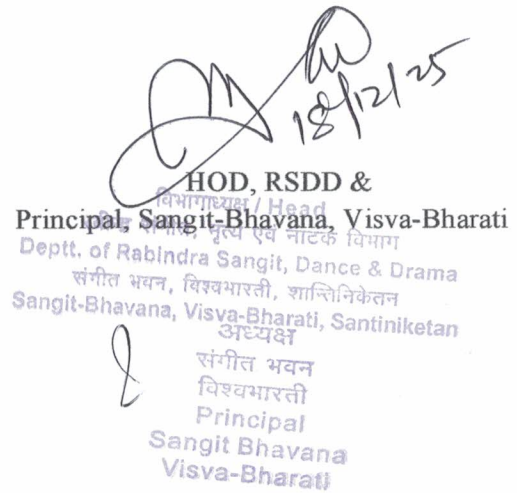 18/12/25
HOD, RSDD &
Principal, Sangit-Bhavana, Visva-Bharati
विभागाध्यक्ष / Head
संगीत, नृत्य एवं नाटक विभाग
Deptt. of Rabindra Sangit, Dance & Drama
संगीत भवन, विश्वभारती, शान्तिनिकेतन
Sangit-Bhavana, Visva-Bharati, Santiniketan
अध्यक्ष
संगीत भवन
विश्वभारती
Principal
Sangit Bhavana
Visva-Bharati